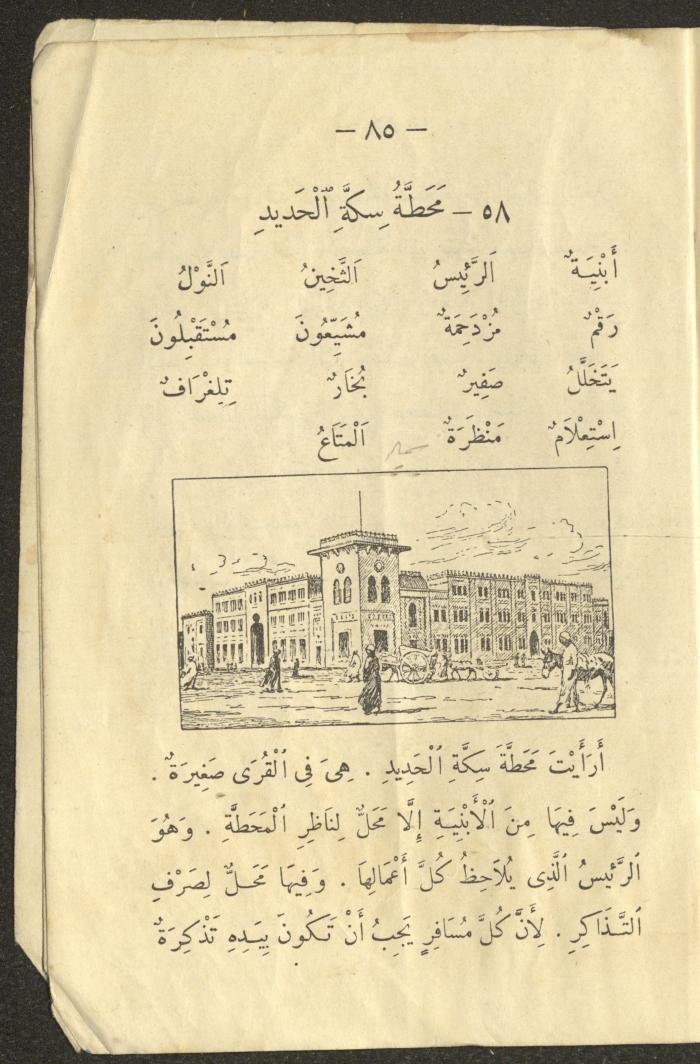 — ٨٥ —
٥٨ – مَحَطَّةُ سِكَّةِ ٱلْحَدِيدِ
أَبْنِيَةٌ ٱلرَّئِيسُ ٱلثَّخِينُ ٱلنَّوْلُ
رَقْمٌ مُزْدَحِمَةٌ مُشَيِّعُونَ مُسْتَقْبِلُونَ
يَتَخَلَّلُ صَفِيرٌ بُخَارٌ تِلِغْرَافٌ
اِسْتِعْلَامٌ مَنْظَرَةٌ ٱلْمَتَاعُ
أَرَأَيْتَ مَحَطَّةَ سِكَّةِ ٱلْحَدِيدِ . هِىَ فِى ٱلْقُرَى صَغِيرَةٌ .
وَلَيْسَ فِيهَا مِنَ ٱلْأَبْنِيَةِ إِلَّا مَحَلٌّ لِنَاظِرِ ٱلْمَحَطَّةِ . وَهُوَ
ٱلرَّئِيسُ ٱلَّذِى يُلَاحِظُ كُلَّ أَعْمَالِهَا . وَفِيهَا مَحَلٌّ لِصَرْفِ
ٱلتَّذَاكِرِ . لِأَنَّ كُلَّ مُسَافِرٍ يَجِبُ أَنْ تَكُونَ بِيَدِهِ تَذْكِرَةٌ